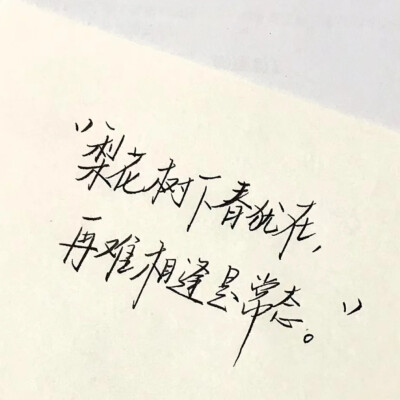 “梨花树下春犹在,
再难相逢是常态。”